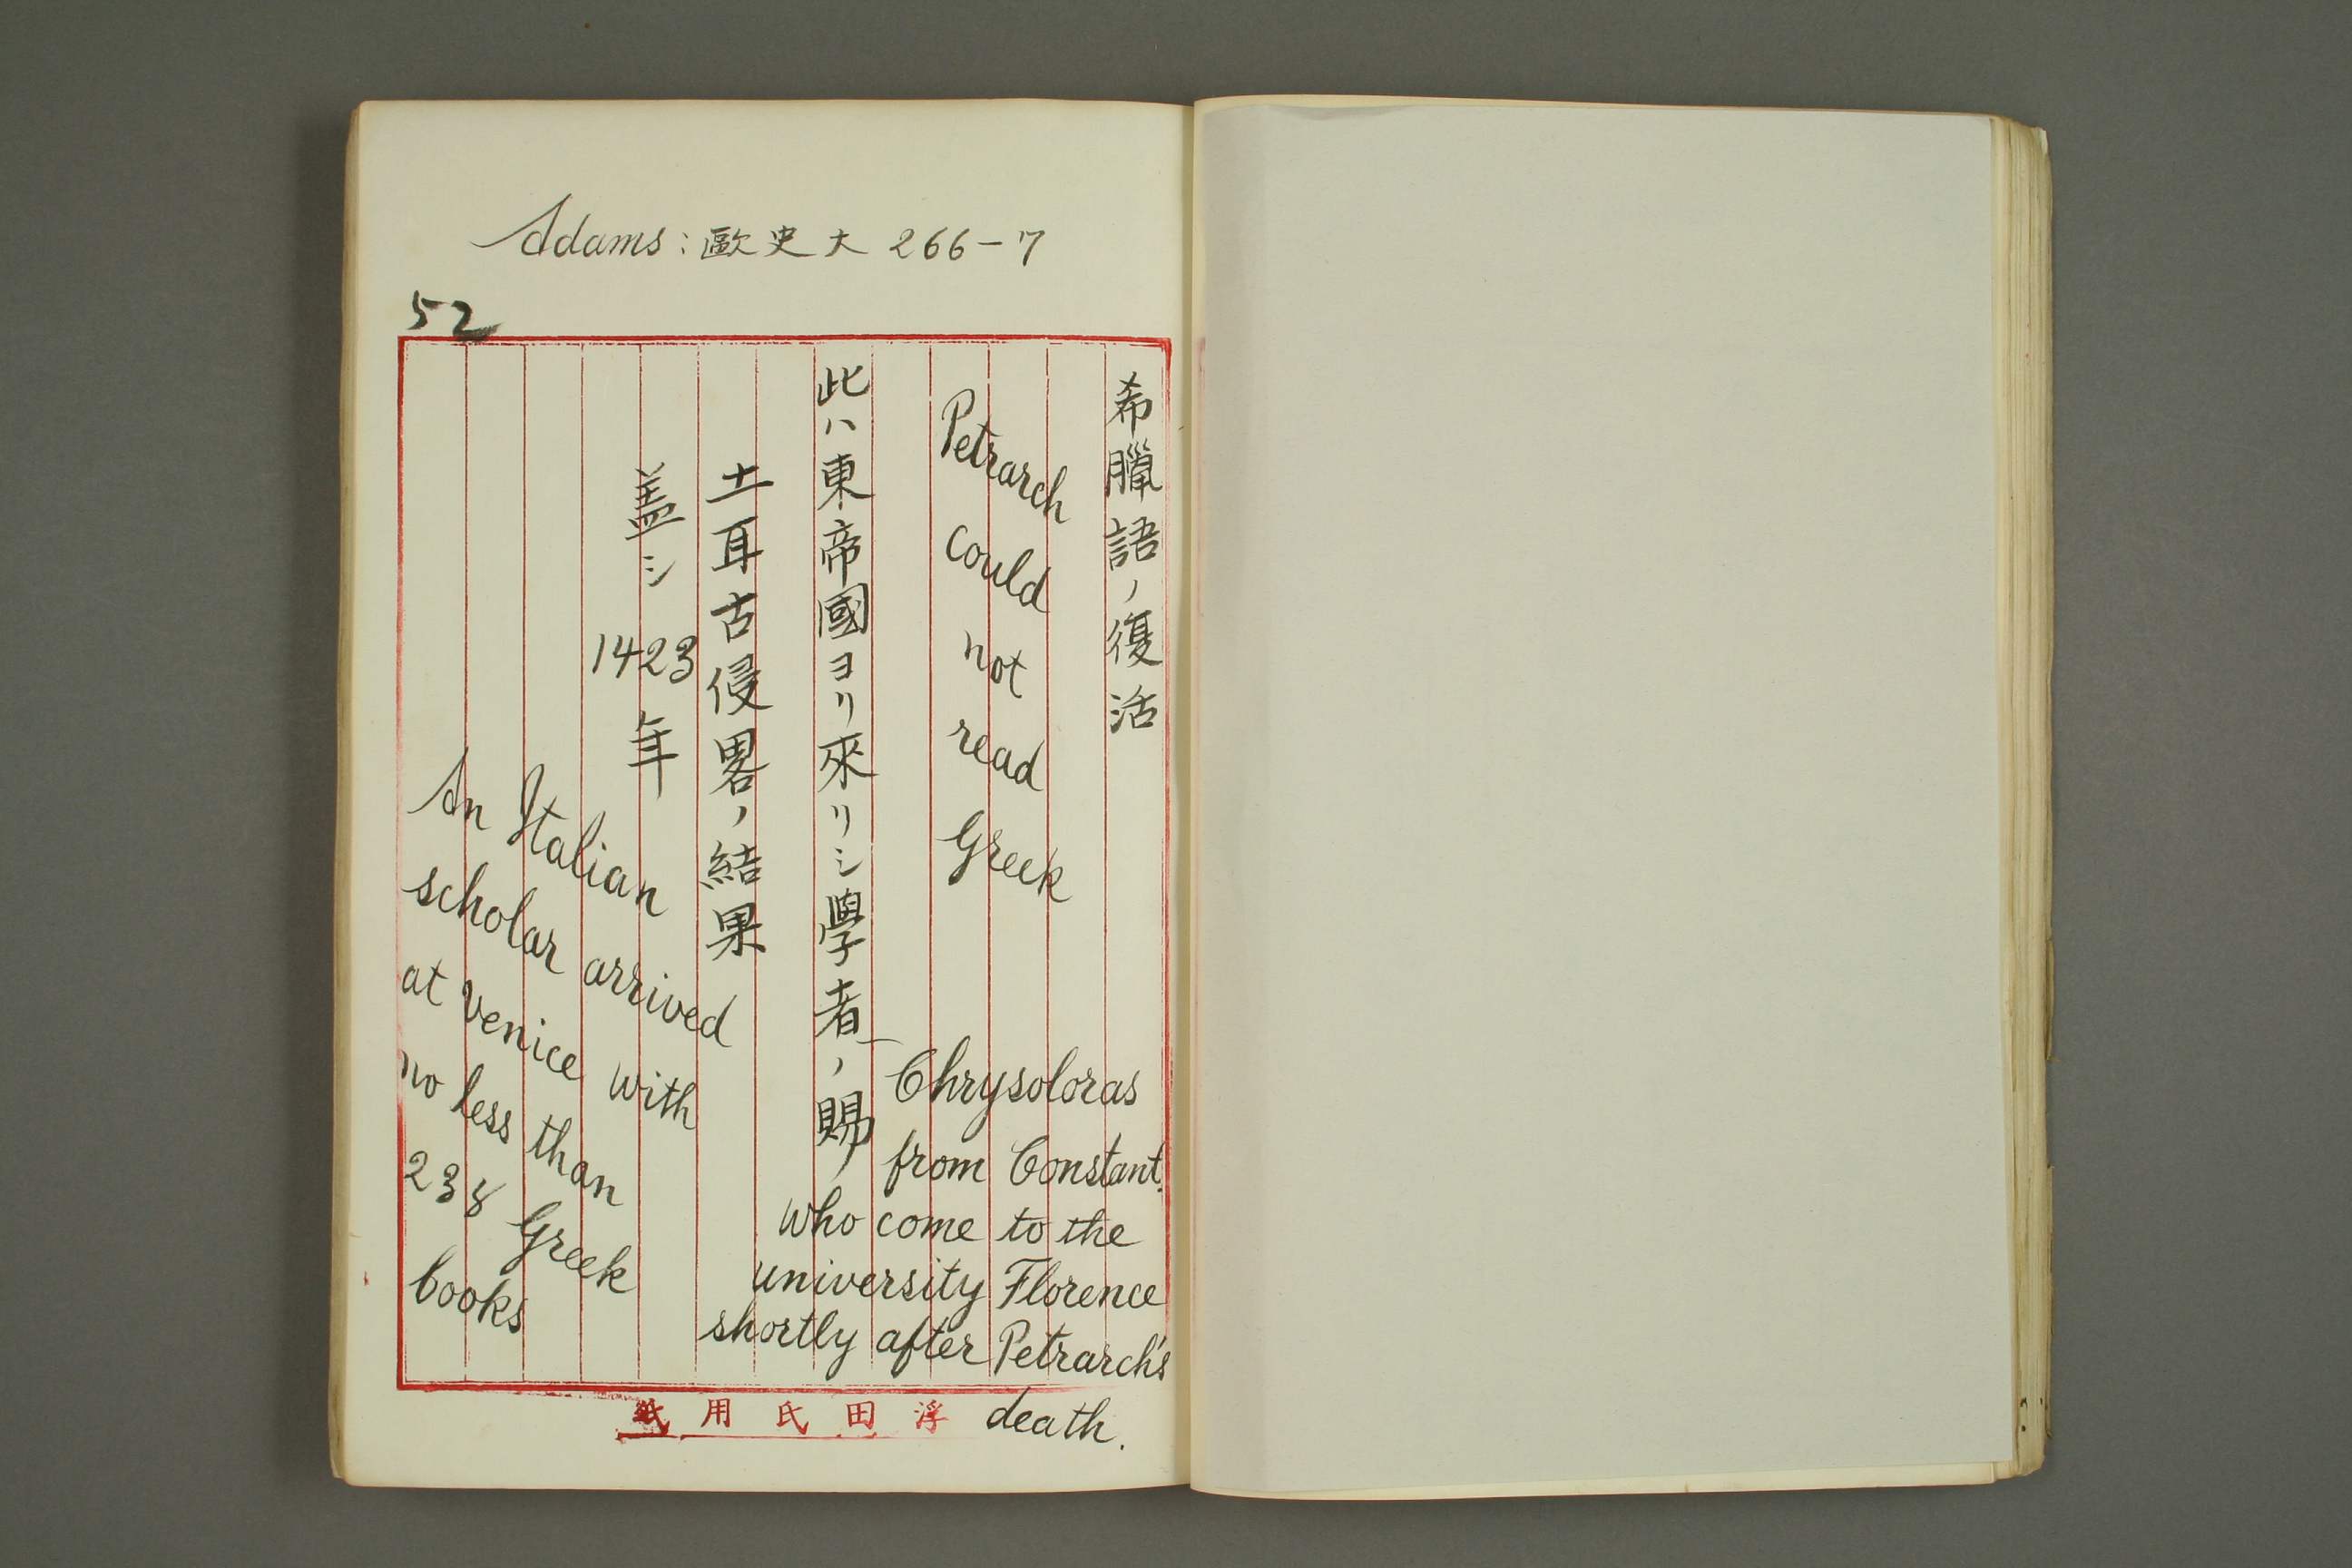 Adams: 歐史大 266-7
52
希臘語ノ復活
Petrarch
could
not
read
Greek
此ハ東帝國ヨリ來リシ學者ノ賜
Chrysoloras
from Constant.
who come to the
university Florence
shortly after Petrarch's
death.
土耳古侵畧ノ結果
盖シ 1423 年
An Italian
scholar arrived
at Venice with
no less than
238 Greek
books
浮田氏用紙